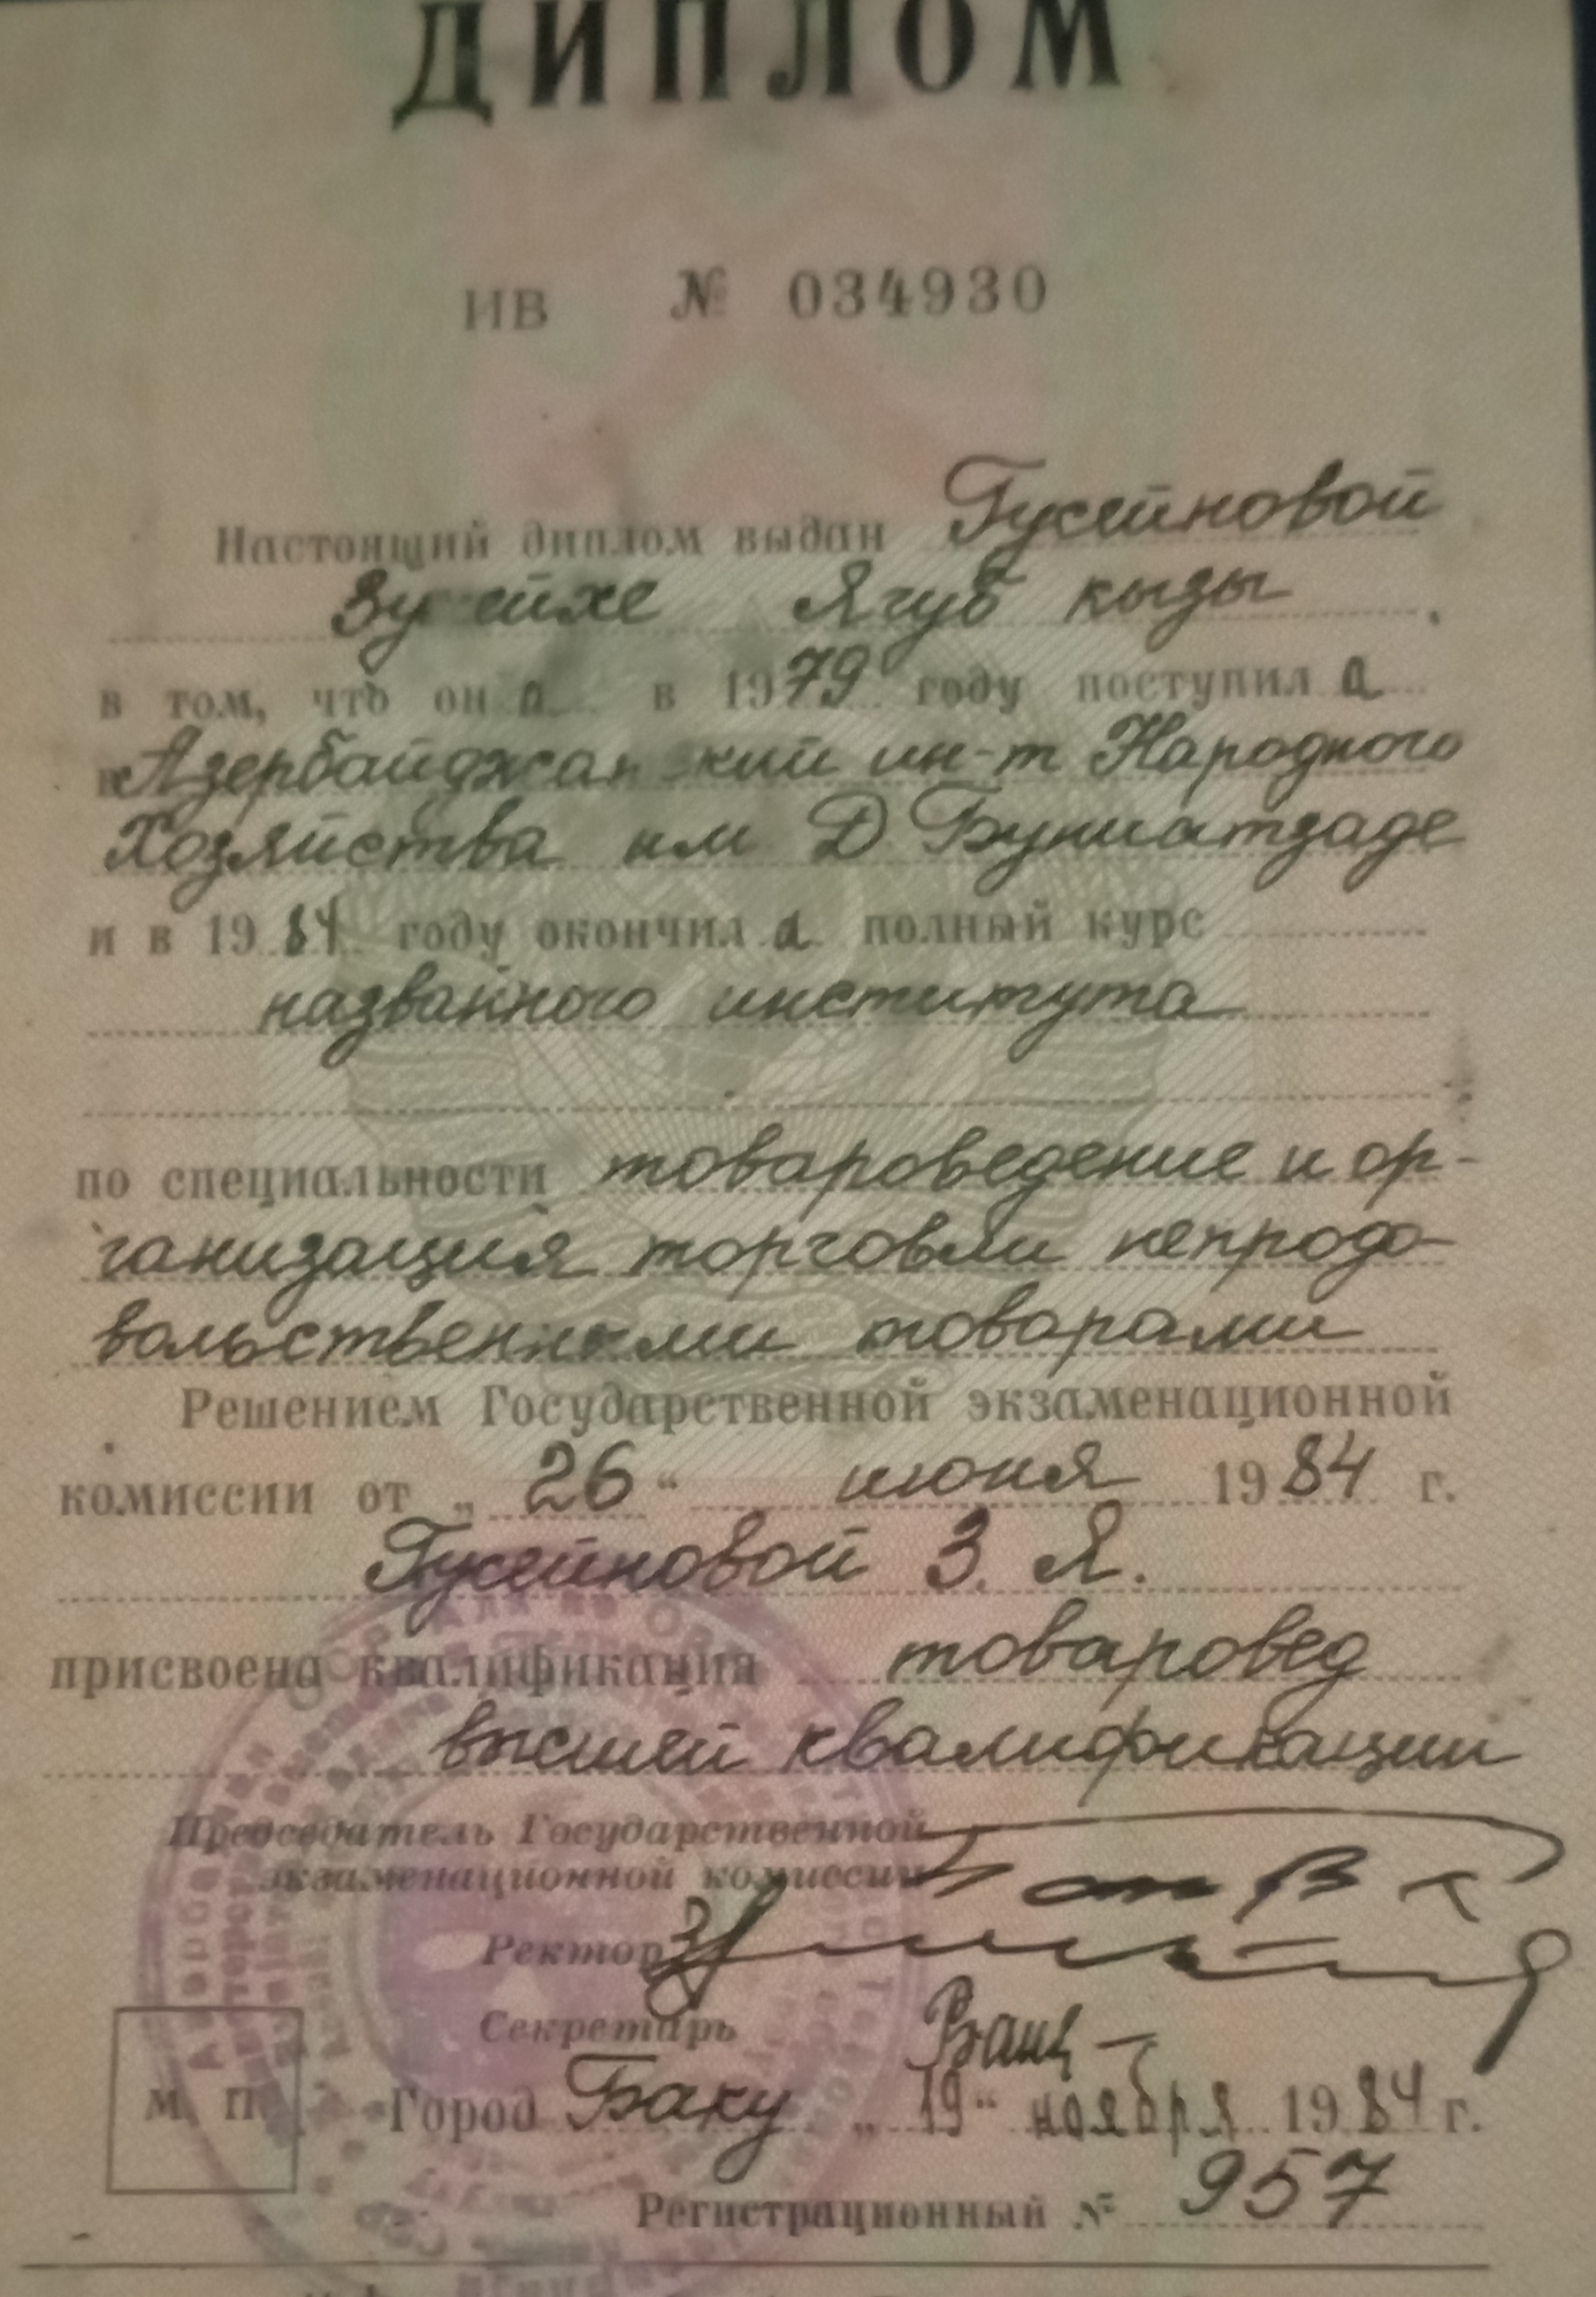 ДИПЛОМ
ИВ № 034930
Настоящий диплом выдан Гусейновой
Ягуб кызы
в том, что он а в 1979 году поступил а
в Азербайджанский ин-т Народного
Хозяйства им Д Буниатзаде
и в 1984 году окончил а полный курс
названного института
по специальности товароведение и ор-
ганизация торговли непродо-
вольственными товарами
Решением Государственной экзаменационной
комиссии от „26“ июня 1984 г.
Гусейновой З. Я.
присвоена квалификация товаровед
высшей квалификации
Председатель Государственной
экзаменационной комиссии
Ректор
Секретарь
М П Город Баку „19“ ноября 1984 г.
Регистрационный № 957